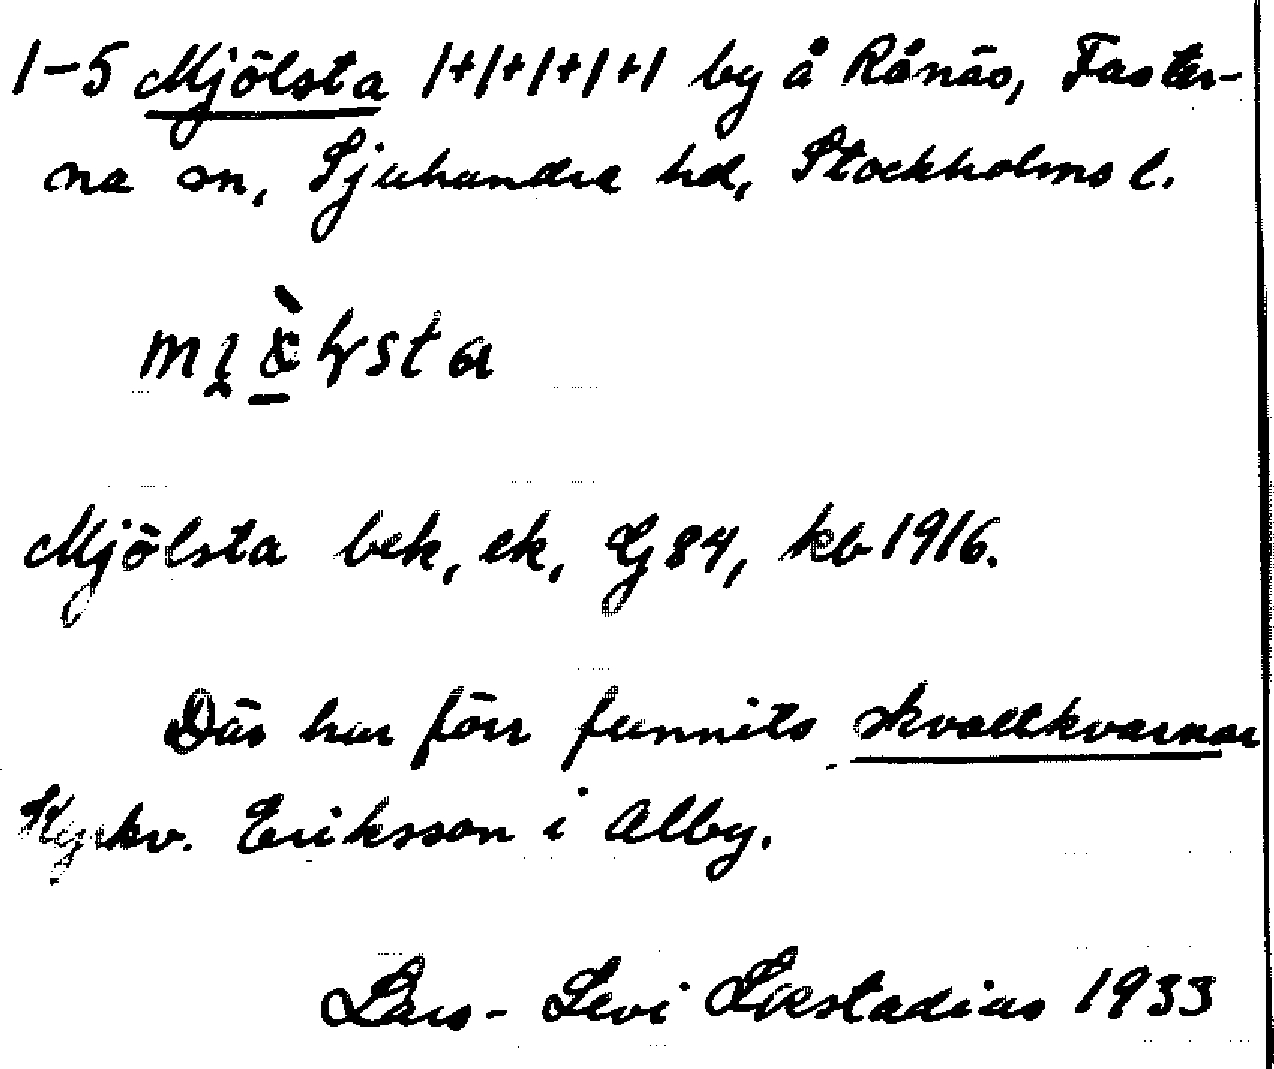 1-5 Mjölsta 1+1+1+1+1 by å Rånäs, Faster-
na sn, Sjuhundra hd, Stockholms l.
Mjölsta bek, ek, Gj 84, kb 1916.
Där har förr funnits skvaltkvarnar
Kyrkv. Eriksson i Alby.
Lars-Levi Læstadius 1933